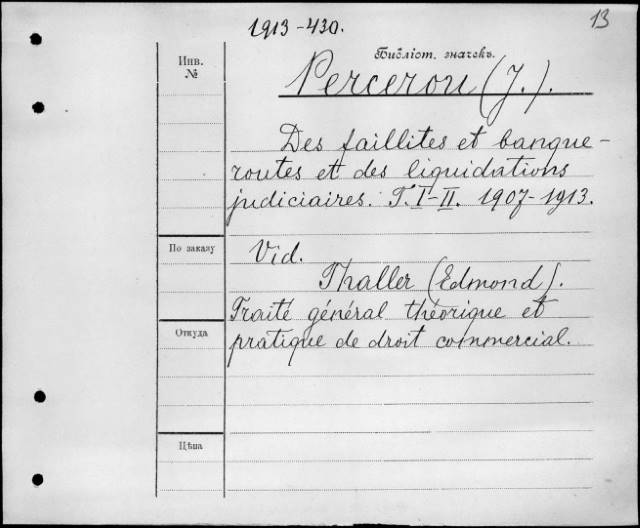 1913-430.
13
Инв.
№
Библіот. значекъ.
Percerou (J.).
Des faillites et banque-
routes et des liquidations
judiciaires. T. I-II. 1907-1913.
По заказу
Vid.
Thaller (Edmond).
Traité général théorique et
Откуда
pratique de droit commercial.
Цѣна